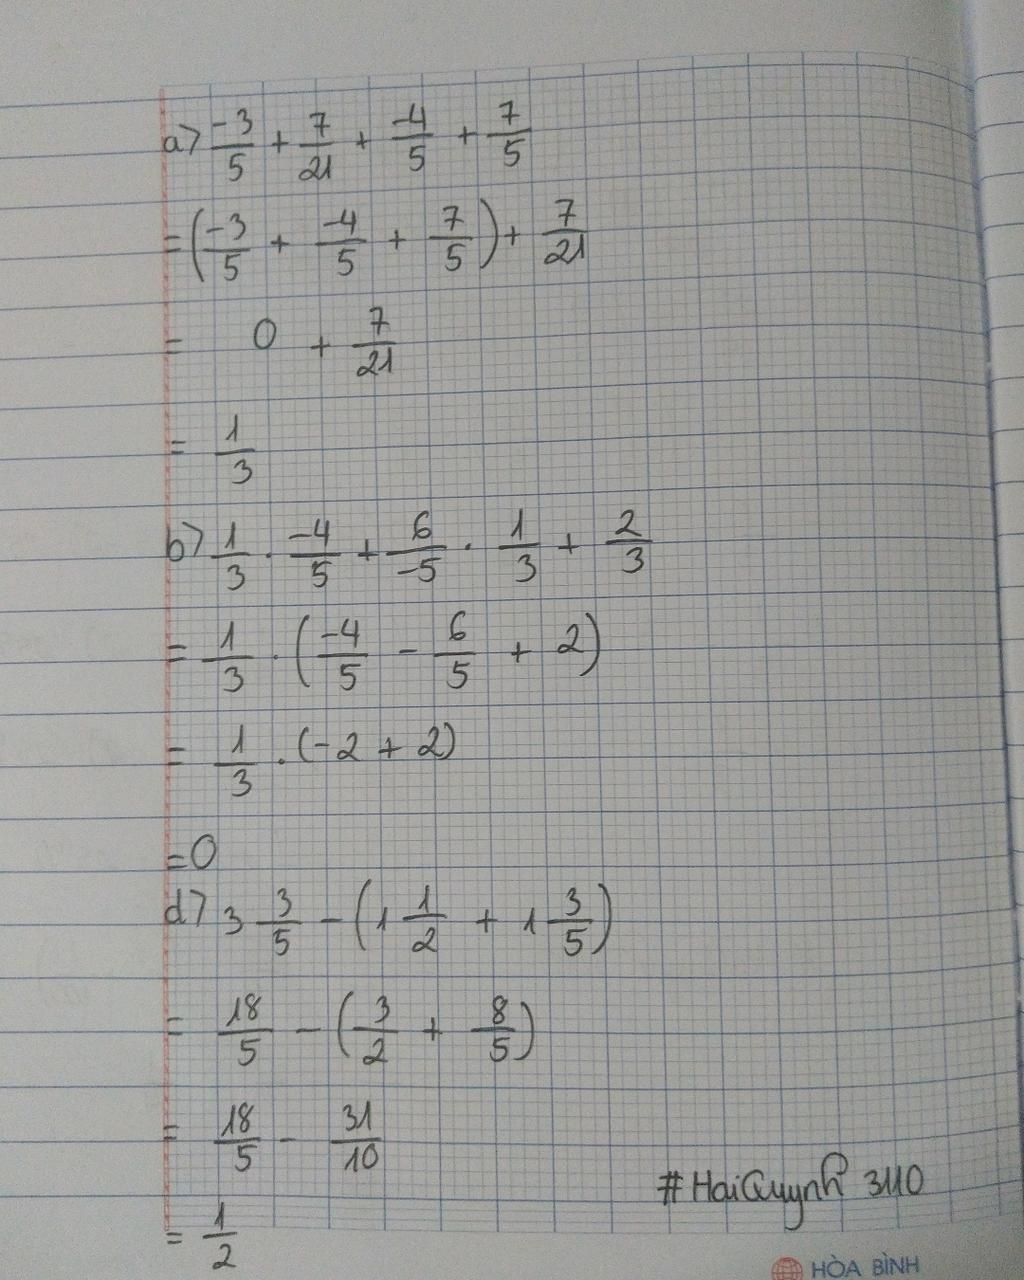 a> -3/5 + 7/21 + -4/5 + 7/5
= (-3/5 + -4/5 + 7/5) + 7/21
= 0 + 7/21
= 1/3
b> 1/3 . -4/5 + 6/-5 . 1/3 + 2/3
= 1/3 . (-4/5 - 6/5 + 2)
= 1/3 . (-2 + 2)
= 0
d> 3 3/5 - (1 1/2 + 1 3/5)
= 18/5 - (3/2 + 8/5)
= 18/5 - 31/10
= 1/2
#HaiQuynh 3110
HÒA BÌNH